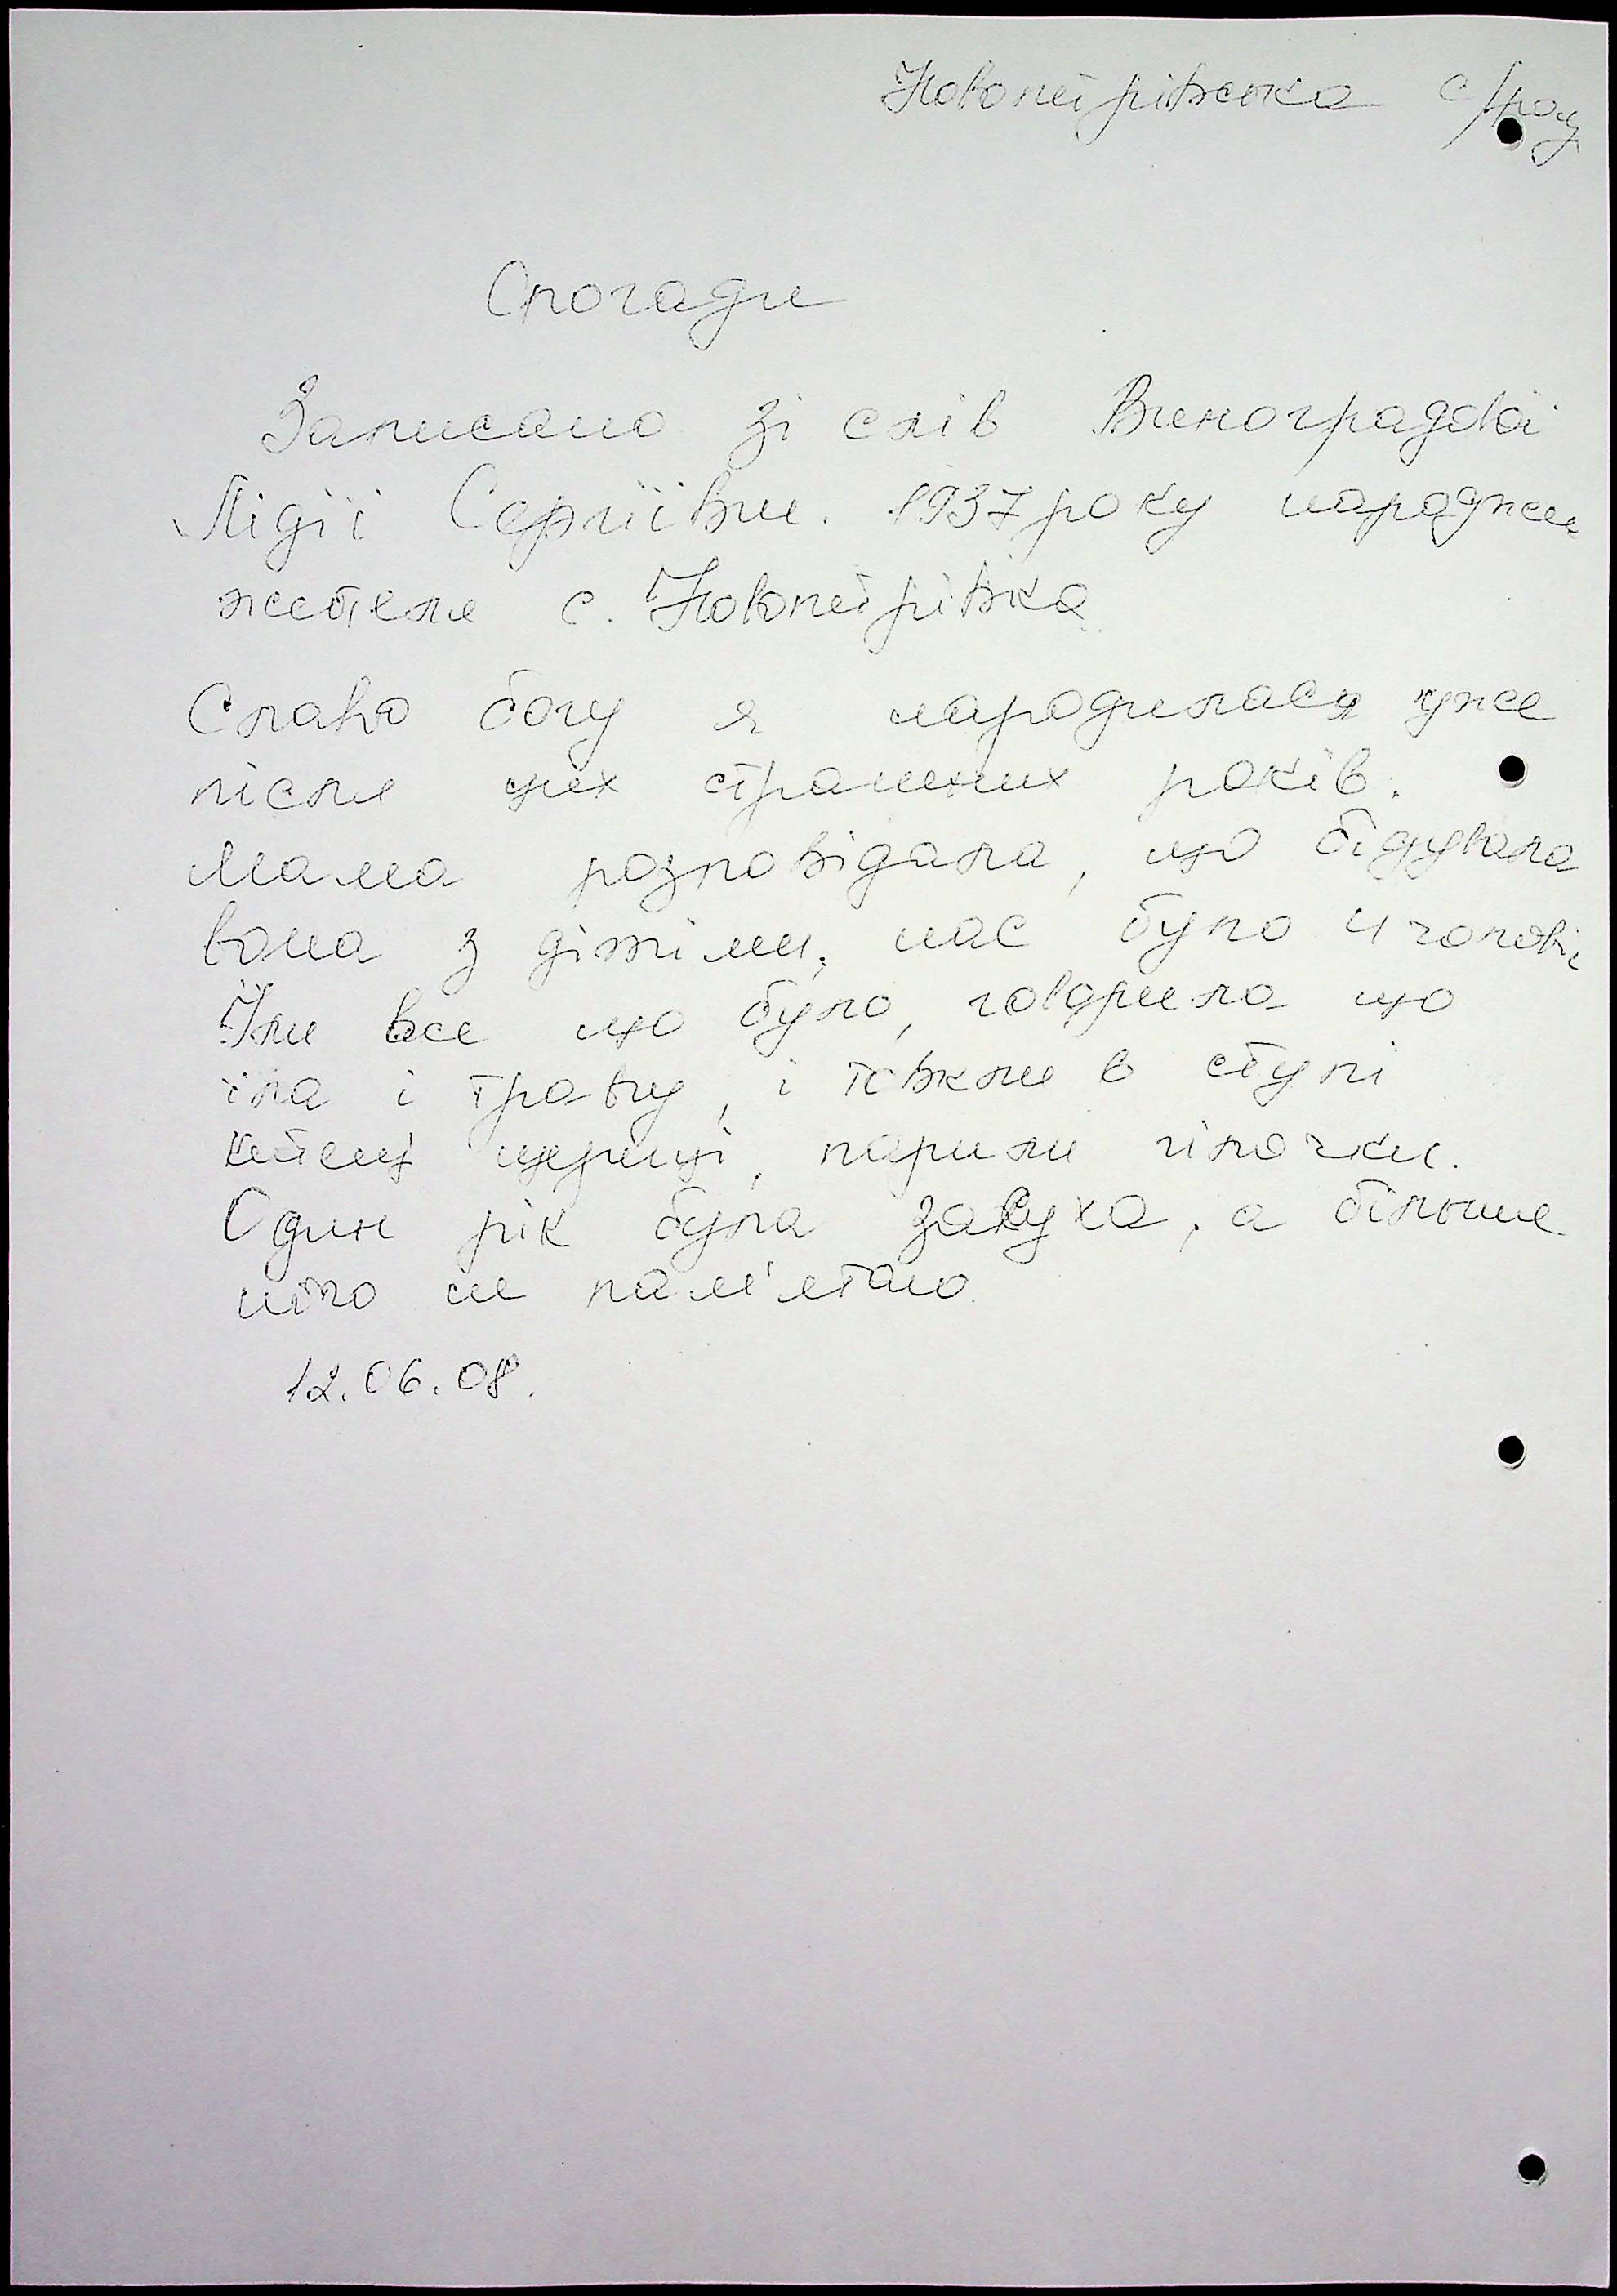 Новопетрівська с/рад
Спогади
Записано зі слів Виноградової
Лідії Сергіївни. 1937 року народжен
жителя с. Новопетрівка
Славо богу я народилася уже
після цих страшних років.
Мама розповідала, що бідувала
вона з дітьми, нас було 4 чолові
Їли все що було, говорила що
їла і траву, і товкли в ступі
парили гілочки.
Один рік була засуха, а більше
нічо не пам'ятаю.
12.06.08.